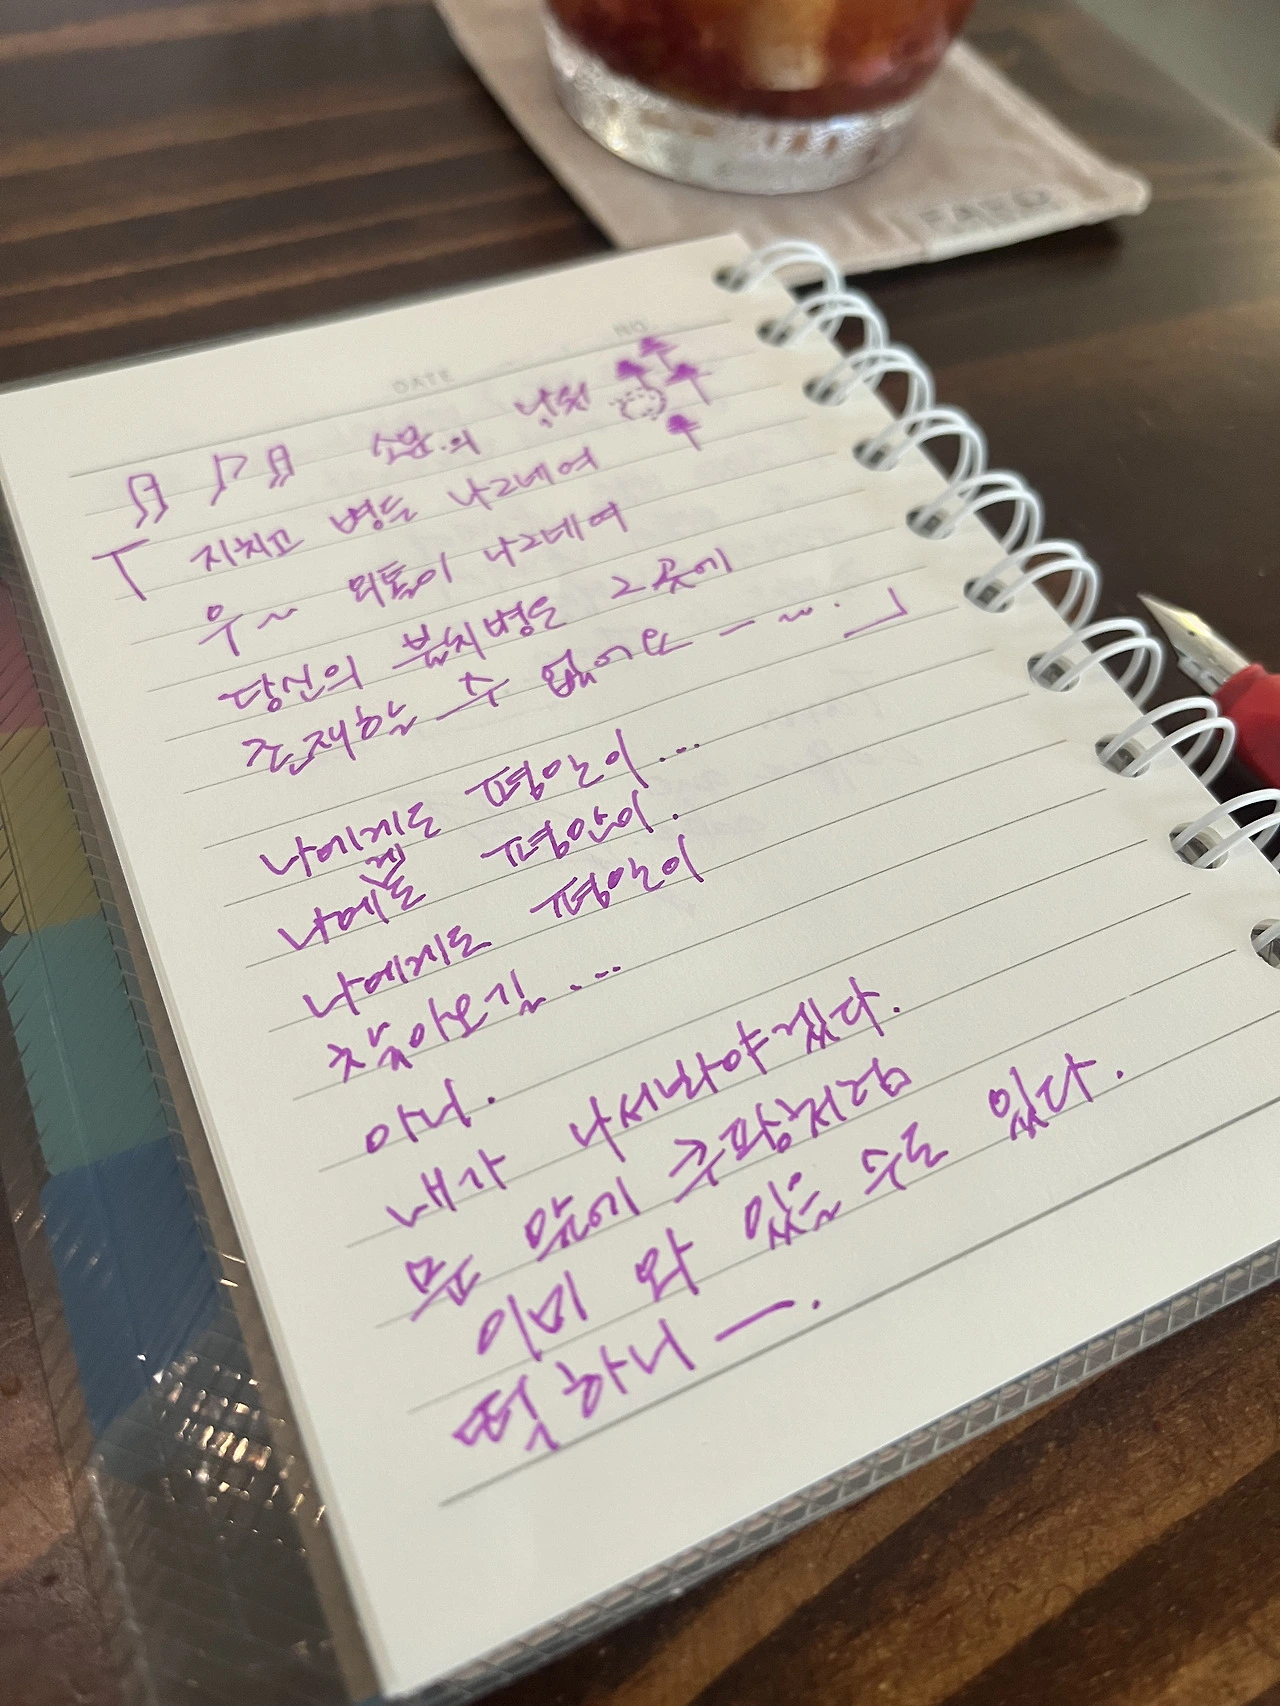 NO
DATE
소문의 낙원
「 지치고 병든 나그네여
우~ 외톨이 나그네여
당신의 불치병은 그곳에
존재할 수 없어요 ー ~. 」
나에게도 평안이...
나에게도 평안이.
나에게도 평안이
찾아오길...
아니.
내가 나서봐야겠다.
문 앞에 쿠팡처럼
이미 와 있을 수도 있다.
떡하니 ー.